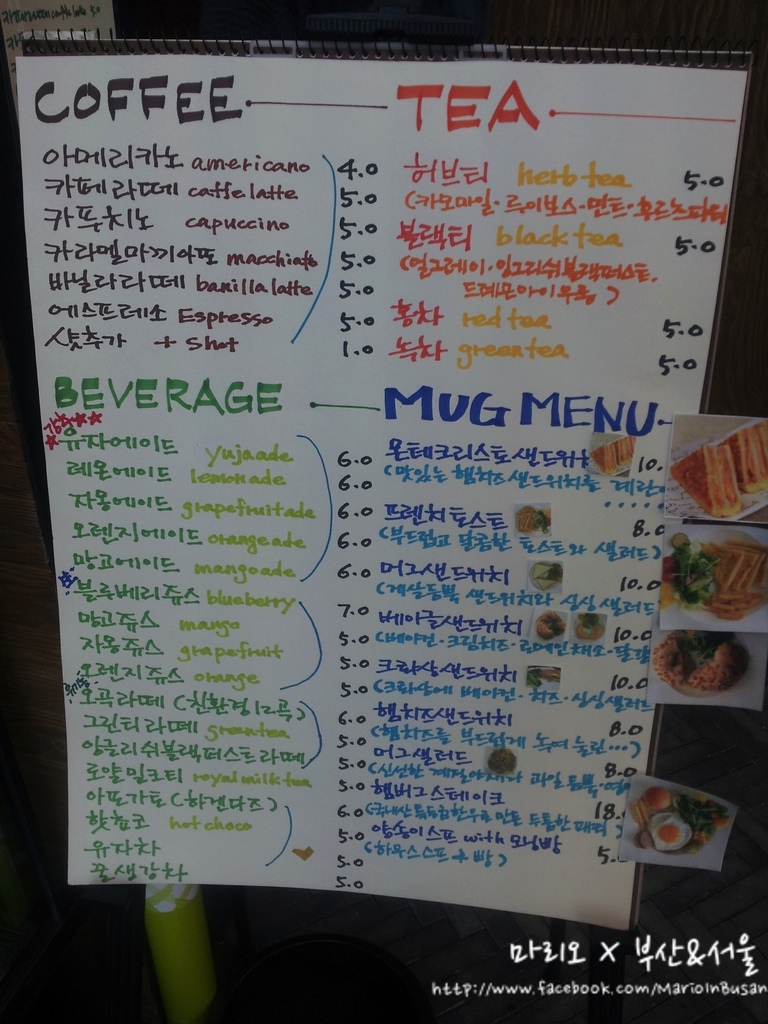 COFFEE
아메리카노 americano 4.0
카페라떼 caffe latte 5.0
카푸치노 capuccino 5.0
카라멜마끼아또 macchiato 5.0
바닐라라떼 banilla latte 5.0
에스프레소 Espresso 5.0
샷추가 + shot 1.0
TEA
허브티 herb tea 5.0
(카모마일·루이보스·민트·후르츠
블랙티 black tea 5.0
(얼그레이·잉그리쉬블랙퍼스트·
)
홍차 red tea 5.0
녹차 green tea 5.0
BEVERAGE
유자에이드 yuja ade 6.0
레몬에이드 lemonade 6.0
자몽에이드 grapefruit ade 6.0
오렌지에이드 orange ade 6.0
망고에이드 mango ade 6.0
블루베리쥬스 blueberry 7.0
망고쥬스 mango 5.0
자몽쥬스 grapefruit 5.0
오렌지쥬스 orange 5.0
오곡라떼 (친환경12곡) 6.0
그린티라떼 greentea 5.0
잉글리쉬블랙퍼스트라떼 5.0
로얄밀크티 royal milk tea 5.0
아포가토 (하겐다즈) 6.0
핫쵸코 hot choco 5.0
유자차 5.0
꿀생강차 5.0
MUG MENU
몬테크리스토샌드위치 10.
(맛있는 햄치즈샌드위치를 계란
.....
프렌치토스트 8.0
(부드럽고 달콤한 토스트와 샐러드)
머그샌드위치 10.0
(게살듬뿍 샌드위치와 싱싱샐러드
베이글샌드위치 10.0
(베이컨·크림치즈·로메인채소·달걀
크롸상샌드위치 10.0
(크롸상에 베이컨·치즈·싱싱샐러드
햄치즈샌드위치 8.0
(햄치즈를 부드럽게 녹여 눌린...)
머그샐러드 8.0
(신선한 계절야채와 과일 듬뿍
햄버그스테이크 18.
한우로 만든 두툼한 패티)
양송이스프 with 모닝빵 5.
(하우스스프 + 빵)
마리오 X 부산&서울
http://www.facebook.com/MarioInBusan